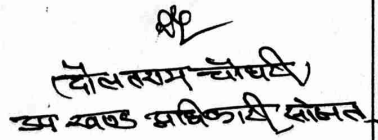 (दौलतराम चौधरी)
उप खण्ड अधिकारी सोजत